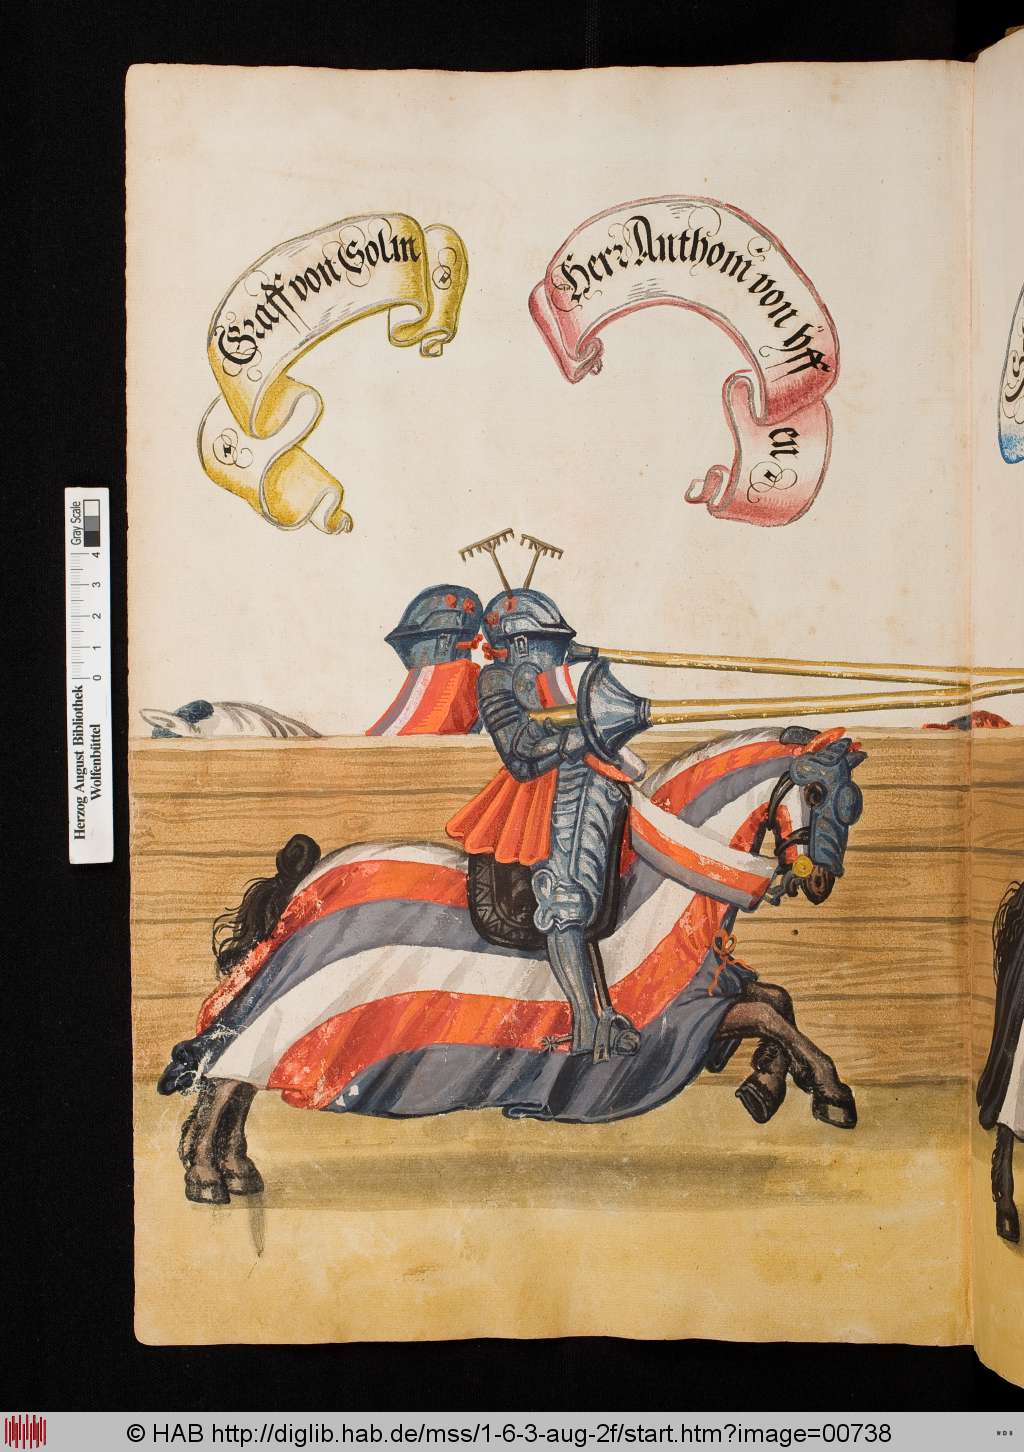 Graff von Solm
Herr Anthom von ÿff
en
Herzog August Bibliothek
Wolfenbüttel
0 1 2 3 4
Gray Scale
© HAB http://diglib.hab.de/mss/1-6-3-aug-2f/start.htm?image=00738